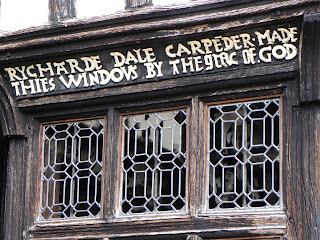 RYCHARDE DALE CARPEDER MADE
THIES WINDOUS BY THE GRAC OF GOD